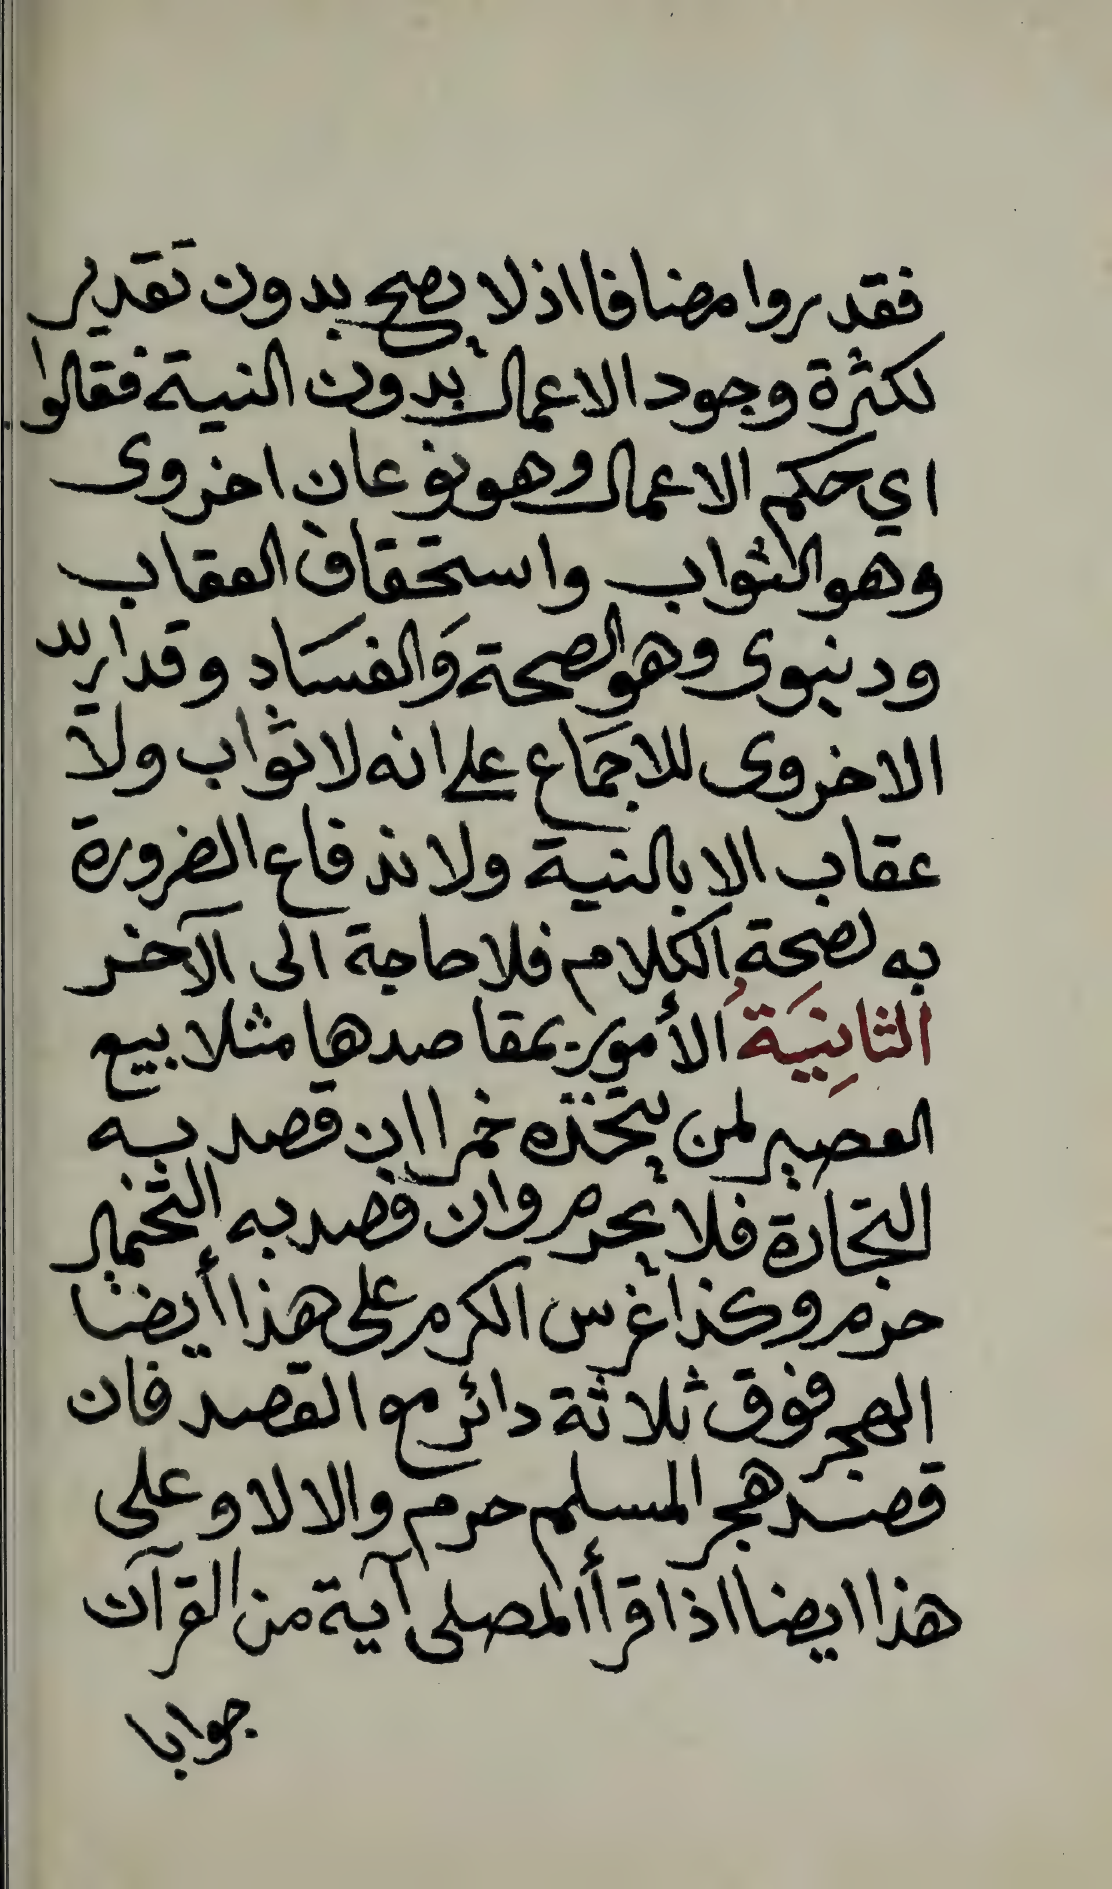 فقدروا مضافا اذ لا يصح بدون تقدير
لكثرة وجود الاعمال بدون النية فقالوا
اي حكم الاعمال وهو نوعان اخروى
وهو الثواب واستحقاق العقاب
ودنيوى وهو الصحة وَالفسَاد وقد اريد
الاخروى للاجمَاع على انه لا ثواب ولا
عقاب الا بالنية ولاندفاع الضرورة
به لصحة الكلام فلا حاجة الى الآخر
الثانِيَةُ الأمور بمقاصدها مثلا بيع
العصير لمن يتخذه خمرا ان قصد به
التجارة فلا يحرم وان قصد به التخمر
حرم وكذا غرس الكرم على هذا أيضا
الهجر فوق ثلاثة دائر مع القصد فان
قصد هجر المسلم حرم والا لا وعلى
هذا ايضا اذا قرأ المصلى آية من القرآن
جوابا